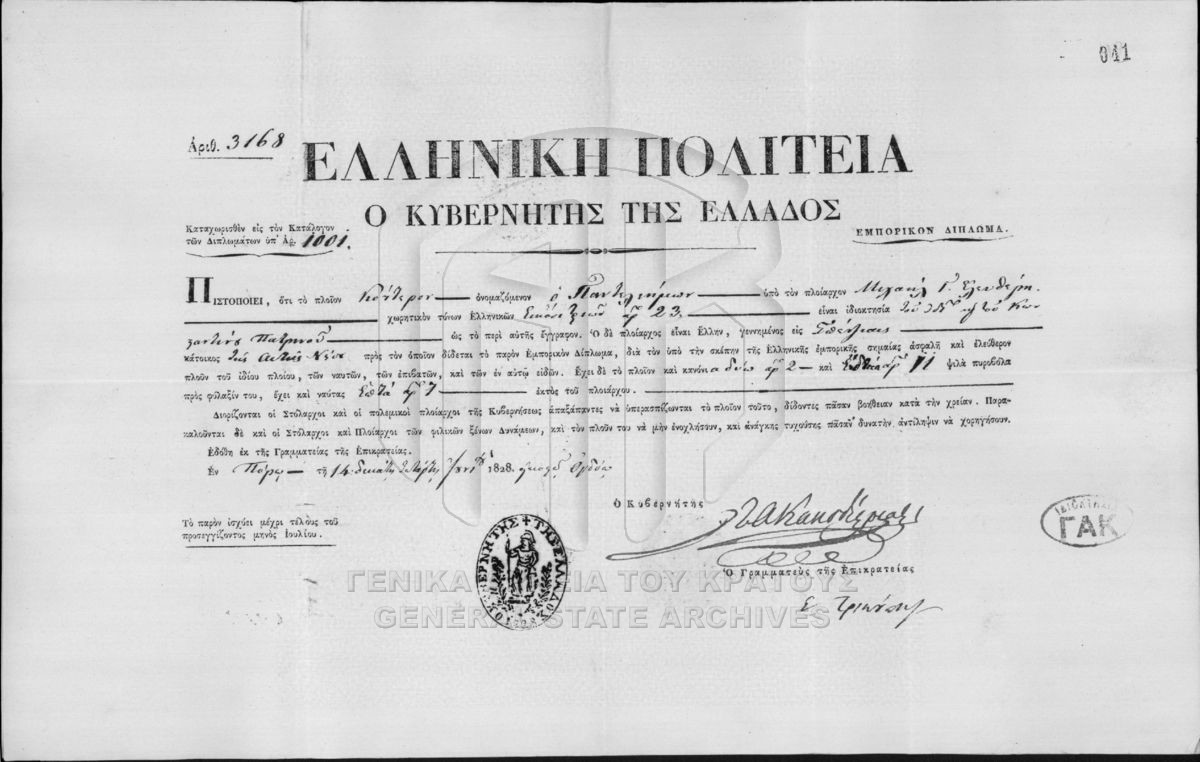 041
Ἀριθ. 3168
ΕΛΛΗΝΙΚΗ ΠΟΛΙΤΕΙΑ
Ο ΚΥΒΕΡΝΗΤΗΣ ΤΗΣ ΕΛΛΑΔΟΣ
Καταχωρισθὲν εἰς τὸν Κατάλογον
τῶν Διπλωμάτων ὑπ' Ἀρ. 1001.
ΕΜΠΟΡΙΚΟΝ ΔΙΠΛΩΜΑ.
ΠΙΣΤΟΠΟΙΕΙ, ὅτι τὸ πλοῖον ὀνομαζόμενον ὁ Παντελεήμων ὑπὸ τὸν πλοίαρχον Μιχαὴλ Γ.
χωρητικὸν τόνων Ἑλληνικῶν 23. εἶναι ἰδιοκτησία τοῦ
ὡς τὸ περὶ αὐτῆς ἔγγραφον. Ὁ δὲ πλοίαρχος εἶναι Ἕλλην, γεννημένος εἰς
κάτοικος πρὸς τὸν ὁποῖον δίδεται τὸ παρὸν Ἐμπορικὸν Δίπλωμα, διὰ τὸν ὑπὸ τὴν σκέπην τῆς Ἑλληνικῆς ἐμπορικῆς σημαίας ἀσφαλῆ καὶ ἐλεύθερον
πλοῦν τοῦ ἰδίου πλοίου, τῶν ναυτῶν, τῶν ἐπιβατῶν, καὶ τῶν ἐν αὐτῷ εἰδῶν. Ἔχει δὲ τὸ πλοῖον καὶ κανόνια δύω ἀρ. 2 — καὶ ψιλὰ πυροβόλα
πρὸς φύλαξίν του, ἔχει καὶ ναύτας ἑπτὰ ἀρ. 7 ἐκτὸς τοῦ πλοιάρχου.
Διορίζονται οἱ Στόλαρχοι καὶ οἱ πολεμικοὶ πλοίαρχοι τῆς Κυβερνήσεως ἁπαξάπαντες νὰ ὑπερασπίζωνται τὸ πλοῖον τοῦτο, δίδοντες πᾶσαν βοήθειαν κατὰ τὴν χρείαν. Παρα-
καλοῦνται δὲ καὶ οἱ Στόλαρχοι καὶ Πλοίαρχοι τῶν φιλικῶν ξένων Δυνάμεων, καὶ τὸν πλοῦν του νὰ μὴν ἐνοχλήσουν, καὶ ἀνάγκης τυχούσης πᾶσαν δυνατὴν ἀντίληψιν νὰ χορηγήσουν.
Ἐδόθη ἐκ τῆς Γραμματείας τῆς Ἐπικρατείας.
Ἐν Πόρῳ — τῇ 14 1828.
Ὁ Κυβερνήτης
Τὸ παρὸν ἰσχύει μέχρι τέλους τοῦ
προσεγγίζοντος μηνὸς Ἰουλίου.
Ι. Α. Καποδίστριας
Ὁ Γραμματεὺς τῆς Ἐπικρατείας
Σ. Τρικούπης
Ο ΚΥΒΕΡΝΗΤΗΣ ΤΗΣ ΕΛΛΑΔΟΣ
ΓΑΚ
ΓΕΝΙΚΑ ΑΡΧΕΙΑ ΤΟΥ ΚΡΑΤΟΥΣ
GENERAL STATE ARCHIVES